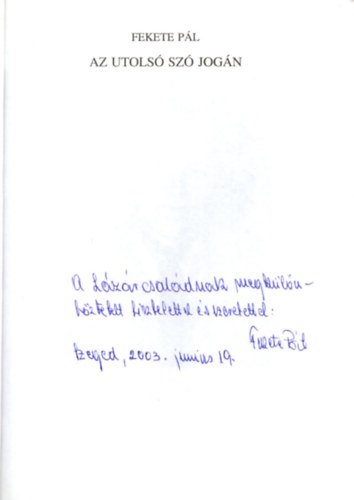 FEKETE PÁL
AZ UTOLSÓ SZÓ JOGÁN
A Lázár családnak megkülön-
böztetett tisztelettel és szeretettel:
Fekete Pál
Szeged, 2003. június 19.